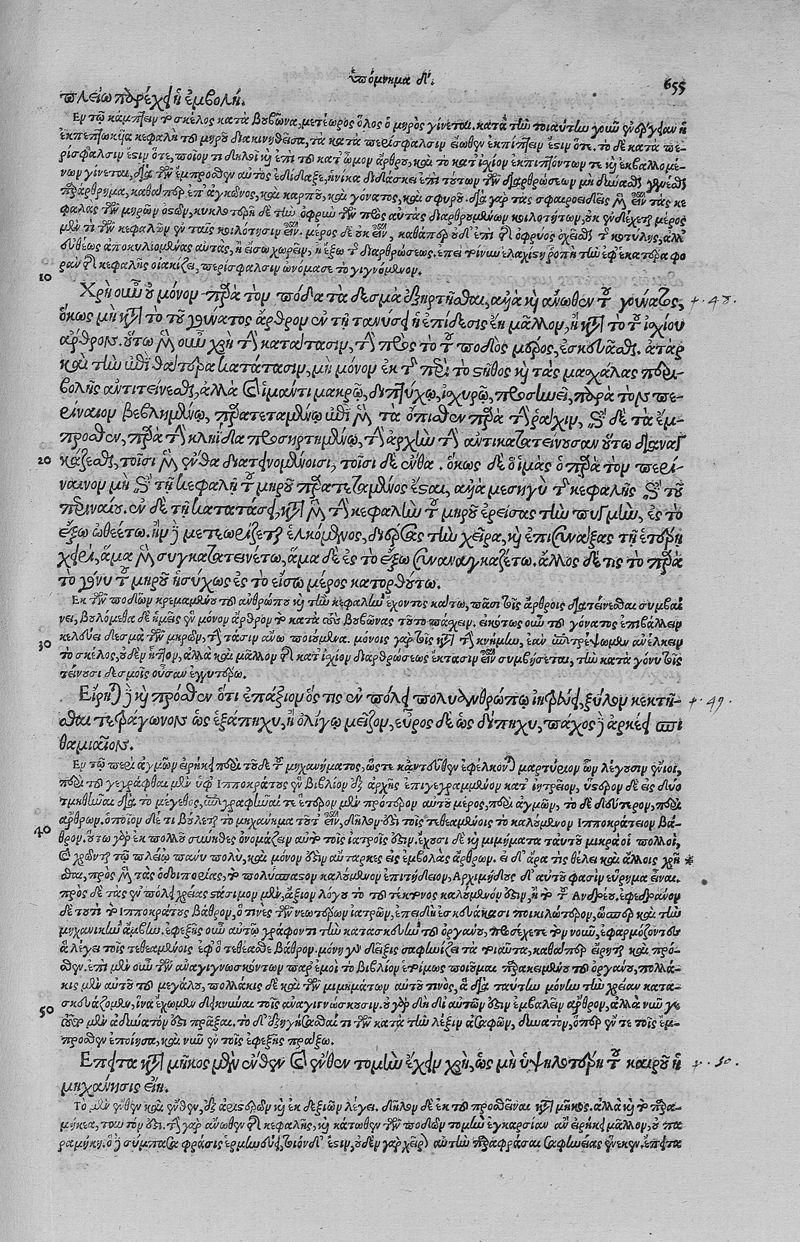 Ὑπόμνημα δ΄. 655
πλείω παρέχει ἡ ἐμβολή.
Ἐν τῷ κάμπτειν τὸ σκέλος κατὰ βουβῶνα, μετέωρος ὅλος ὁ μηρὸς γίνεται. κατὰ τὴν τοιαύτην γοῦν ἐνέργειαν ἡ
ἐκπεπτωκυῖα κεφαλὴ τοῦ μηροῦ διακινηθεῖσα, τὰ κατὰ περίσφαλσιν εἰωθὸν ἐκπίπτειν ἐστὶν ὅτε. τὸ δὲ κατὰ πε-
ρίσφαλσιν ἐστὶν ὅτε, ποῖόν τι δηλοῖ καὶ ἐπὶ τοῦ κατ' ὦμον ἄρθρου, καὶ τοῦ κατ' ἰσχίον ἐκπιπτόντων τε καὶ ἐκβαλλομέ-
νων γίνεται, διὰ τῶν ἔμπροσθεν αὐτὸς ἐδίδαξε, ἡνίκα διδάσκει ἐπὶ τούτων τῶν διαρθρώσεων μὴ δύνασθαι γενέσθαι
παράρθρημα, καθάπερ ἐπ' ἀγκῶνος, καὶ καρποῦ, καὶ γόνατος, καὶ σφυροῦ. διὰ γὰρ τὰς σφαιροειδεῖς εἶναι τὰς κε
φαλὰς τῶν μηρῶν ὀστῶν, κυκλοτερῆ δὲ τὴν ὀφρὺν τῶν πρὸς αὐτὰς διαρθρουμένων κοιλοτήτων, οὐκ ἐνδέχεται μέρος
μέν τι τῶν κεφαλῶν ἐν ταῖς κοιλότησιν εἶναι. μέρος δὲ οὐκ εἶναι, καθάπερ οὐδ' ἐπὶ τῆς ὀφρύος ὀχεῖσθαι τῆς κοτύλης, ἀλλ'
εὐθέως ἀποκυλιομένας αὐτὰς, ἢ εἴσω χωρεῖν, ἢ ἔξω τῆς διαρθρώσεως. ἐπεὶ τοίνυν ἐλαχίστη ῥοπὴ τὴν ἐφ' ἑκάτερα φο
10 ρὰν τῆς κεφαλῆς οἰακίζει, περίσφαλσιν ὠνόμασε τὸ γιγνόμενον.
Χρὴ οὖν οὐ μόνον παρὰ τὸν πόδα τὰ δεσμὰ ἐξηρτῆσθαι, ἀλλὰ καὶ ἄνωθεν τοῦ γούνατος, + 48.
ὅκως μὴ κατὰ τὸ τοῦ γούνατος ἄρθρον ἐν τῇ τανύσει ἡ ἐπίδεσις ἔῃ μᾶλλον, ἢ κατὰ τὸ τοῦ ἰσχίου
ἄρθρον. οὕτω μὲν οὖν χρὴ τὴν κατάτασιν, τὴν πρὸς τὸ τοῦ ποδὸς μέρος, ἐσκευάσθαι. ἀτὰρ
καὶ τὴν ἐπὶ θάτερα κατάτασιν, μὴ μόνον ἐκ τοῦ περὶ τὸ στῆθος καὶ τὰς μασχάλας περι-
βολῆς ἀντιτείνεσθαι, ἀλλὰ καὶ ἱμάντι μακρῷ, διπτύχῳ, ἰσχυρῷ, προσηνεῖ, παρὰ τὸν πε-
ρίναιον βεβλημένῳ, παρατεταμένῳ ἐπὶ μὲν τὰ ὄπισθεν παρὰ τὴν ῥάχιν, ἐπὶ δὲ τὰ ἔμ-
προσθεν, παρὰ τὴν κληῗδα προσηρτημένῳ, τὴν ἀρχὴν τὴν ἀντικατατείνουσαν οὕτω διαναγ
20 κάζεσθαι, τοῖσι μὲν ἔνθα διατεινομένοισι, τοῖσι δὲ ἔνθα. ὅκως δὲ ὁ ἱμὰς ὁ παρὰ τὸν περί-
ναιον μὴ ἐπὶ τῇ κεφαλῇ τοῦ μηροῦ παρατεταμένος ἔσται, ἀλλὰ μεσηγὺ τῆς κεφαλῆς καὶ τοῦ
περιναίου. ἐν δὲ τῇ κατατάσει, κατὰ μὲν τὴν κεφαλὴν τοῦ μηροῦ ἐρείσας τὴν πυγμὴν, ἐς τὸ
ἔξω ὠθεέτω. ἢν δὲ μετεωρίζηται ἑλκόμενος, διέρσας τὴν χεῖρα, καὶ ἐπισυνάψας τῇ ἑτέρῃ
χειρὶ, ἅμα μὲν συγκατατεινέτω, ἅμα δὲ ἐς τὸ ἔξω συναναγκαζέτω. ἄλλος δέ τις τὸ παρὰ
τὸ γόνυ τοῦ μηροῦ ἡσύχως ἐς τὸ εἴσω μέρος κατορθούτω.
Ἐκ τῶν ποδῶν κρεμαμένου τοῦ ἀνθρώπου καὶ τὴν κεφαλὴν ἔχοντος κάτω, πᾶσι τοῖς ἄρθροις διατείνεσθαι συμβαί
νει, βουλόμεθα δὲ ἡμεῖς ἓν μόνον ἄρθρον τὸ κατὰ τοὺς βουβῶνας τοῦτο πάσχειν. εἰκότως οὖν τοῦ γόνατος ἐπιβάλλειν
30 κελεύει δεσμὰ τῶν μηρῶν, τὴν τάσιν ἄνω ποιούμενα. μόνοις γὰρ τοῖς κατὰ τὴν κνήμην, ἐὰν ἐπιτρέψωμεν ἀνέλκειν
τὸ σκέλος, οὐδὲν ἧττον, ἀλλὰ καὶ μᾶλλον τῆς κατ' ἰσχίον διαρθρώσεως ἔκτασιν εἶναι συμβήσεται, τὴν κατὰ γόνυ τοῖς
τείνουσι δεσμοῖς οὖσαν ἐγγυτέρω.
Εἴρηται δὲ καὶ πρόσθεν ὅτι ἐπάξιον ὅς τις ἐν πόλει πολυανθρώπῳ ἰητρεύει, ξύλον κεκτῆ- + 49.
σθαι τετράγωνον ὡς ἑξάπηχυ, ἢ ὀλίγῳ μεῖζον, εὖρος δὲ ὡς δίπηχυ, πάχος δὲ ἀρκέει σπι
θαμιαῖον.
Ἐν τῷ περὶ ἀγμῶν εἴρηκε περὶ τοῦδε τοῦ μηχανήματος, ὥστε κἀντεῦθεν ἐφέλκονται μαρτύριον ὧν λέγουσιν ἔνιοι,
περὶ τοῦ γεγράφθαι μὲν ὑφ' Ἱπποκράτους ἓν βιβλίον ἐξ ἀρχῆς ἐπιγεγραμμένον κατ' ἰητρεῖον, ὕστερον δὲ εἰς δύο
τμηθῆναι διὰ τὸ μέγεθος, ἐπιγραφῆναί τε ἕτερον μὲν πρότερον αὐτοῦ μέρος, περὶ ἀγμῶν, τὸ δὲ δεύτερον, περὶ
40 ἄρθρων. ὁποῖον δέ τι βούλεται τὸ μηχάνημα τοῦτ' εἶναι, δῆλον ἐστὶ τοῖς τεθεαμένοις τὸ καλούμενον Ἱπποκράτειον βά-
θρον. οὕτω γὰρ ἐκ πολλοῦ σύνηθες ὀνομάζειν αὐτὸ τοῖς ἰατροῖς ἐστιν. ἔχουσι δὲ καὶ μιμήματα ταὐτοῦ μικρὰ οἱ πολλοὶ,
καὶ χρῶνται τῷ πλείῳ πάνυ πολὺ, καὶ μόνον ἐστὶν αὔταρκες εἰς ἐμβολὰς ἄρθρων. εἰ δ' ἄρα τις θέλει καὶ ἄλλοις χρῆ *
σθαι, πρὸς μὲν τὰς ὁδοιπορίας, τὸ πολύσπαστον καλούμενον ἐπιτήδειον, Ἀρχιμήδους δ' αὐτό φασιν εὕρημα εἶναι.
πρὸς δὲ τὰς ἐν πόλει χρείας στάσιμον μὲν, ἄξιον λόγου τὸ τοῦ τέκτονος καλούμενόν ἐστιν, ἢ τὸ τοῦ Ἀνδρέου, ἐφεδρεῦον
δὲ τουτὶ τὸ Ἱπποκράτους βάθρον, ὅ τινες τῶν νεωτέρων ἰατρῶν, ἐπειδὴ ἐσκευάκασι ποικιλώτερον, ὥσπερ καὶ τὴν
μηχανικὴν ἄμβην. ἐφεξῆς οὖν αὐτῷ γράφοντι τὴν κατασκευὴν τοῦ ὀργάνου, προσέχετε τὸν νοῦν, ἐφαρμόζοντες
ἃ λέγει τοῖς τεθεαμένοις ἐφ' ὃ τεθέασθε βάθρον. μόνη γὰρ δεῖξις σαφηνίζει τὰ τοιαῦτα, καθάπερ εἴρηται καὶ πρό-
σθεν. ἐπὶ μὲν οὖν τῶν ἀναγιγνωσκόντων παρ' ἐμοὶ τὸ βιβλίον ἑτοίμως ποιοῦμαι παρακειμένου τοῦ ὀργάνου, πολλά-
κις μὲν αὐτοῦ τοῦ μεγάλου, πολλάκις δὲ καὶ τῶν μιμημάτων αὐτοῦ τινος, ἃ διὰ ταύτην μόνην τὴν χρείαν κατα-
50 σκευάζομεν, ἵνα ἔχωμεν δεικνύναι τοῖς ἀναγιγνώσκουσιν. οὐ γὰρ δὴ δι' αὐτῶν ἐστιν ἐμβαλεῖν ἄρθρον, ἀλλὰ νῦν γε
τοῦτο μὲν ἀδύνατόν ἐστι πρᾶξαι. τὸ δ' ἐξηγήσασθαί τι τῶν κατὰ τὴν λέξιν ἀσαφῶν, δυνατὸν, ὅπερ ἔν τε τοῖς ἔμ-
προσθεν ἐποίησα, καὶ νῦν ἐν τοῖς ἐφεξῆς πράξω.
Ἔπειτα κατὰ μῆκος μὲν ἔνθεν καὶ ἔνθεν τομὴν ἔχειν χρὴ, ὡς μὴ ὑψηλοτέρη τοῦ καιροῦ ἡ + 50.
μηχάνησις εἴη.
Τὸ μὲν ἔνθεν καὶ ἔνθεν, ἐξ ἀριστερῶν καὶ ἐκ δεξιῶν λέγει. δῆλον δὲ ἐκ τοῦ προσθεῖναι κατὰ μῆκος. ἀλλὰ καὶ τὸ παρα-
μήκεα, τουτόν ἐστι. τὴν γὰρ ἄνωθεν τῆς κεφαλῆς, καὶ κάτωθεν τῶν ποδῶν τομὴν ἐγκαρσίαν ἂν εἰρήκει μᾶλλον, οὐ πα
ραμήκη. ἡ δὲ σύμπασα φράσις ἑρμηνευτέον δ' ἐστὶν, οὐδὲν γὰρ χεῖρον αὐτὴν παραφράσαι σαφηνείας ἕνεκεν. ἔπειτα